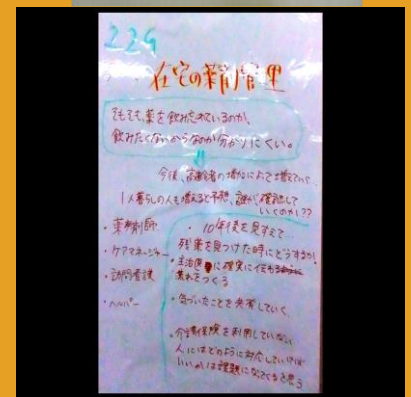 22G
在宅の薬剤管理
そもそも、薬を飲み忘れているのか、
飲みたくないからなのか分かりにくい。
今後、高齢者の増加によって増えていく
1人暮らしの人も増えると予想、誰が確認して
いくのか??
・薬剤師
・ケアマネージャー
・訪問看護
・ヘルパー
・10年後を見すえて…
残薬を見つけた時にどうするか!
・主治医に確実に伝わる
流れをつくる
・気づいたことを共有していく
・介護保険を利用していない
人にはどのように対応していけば
いいかは課題になってくると思う